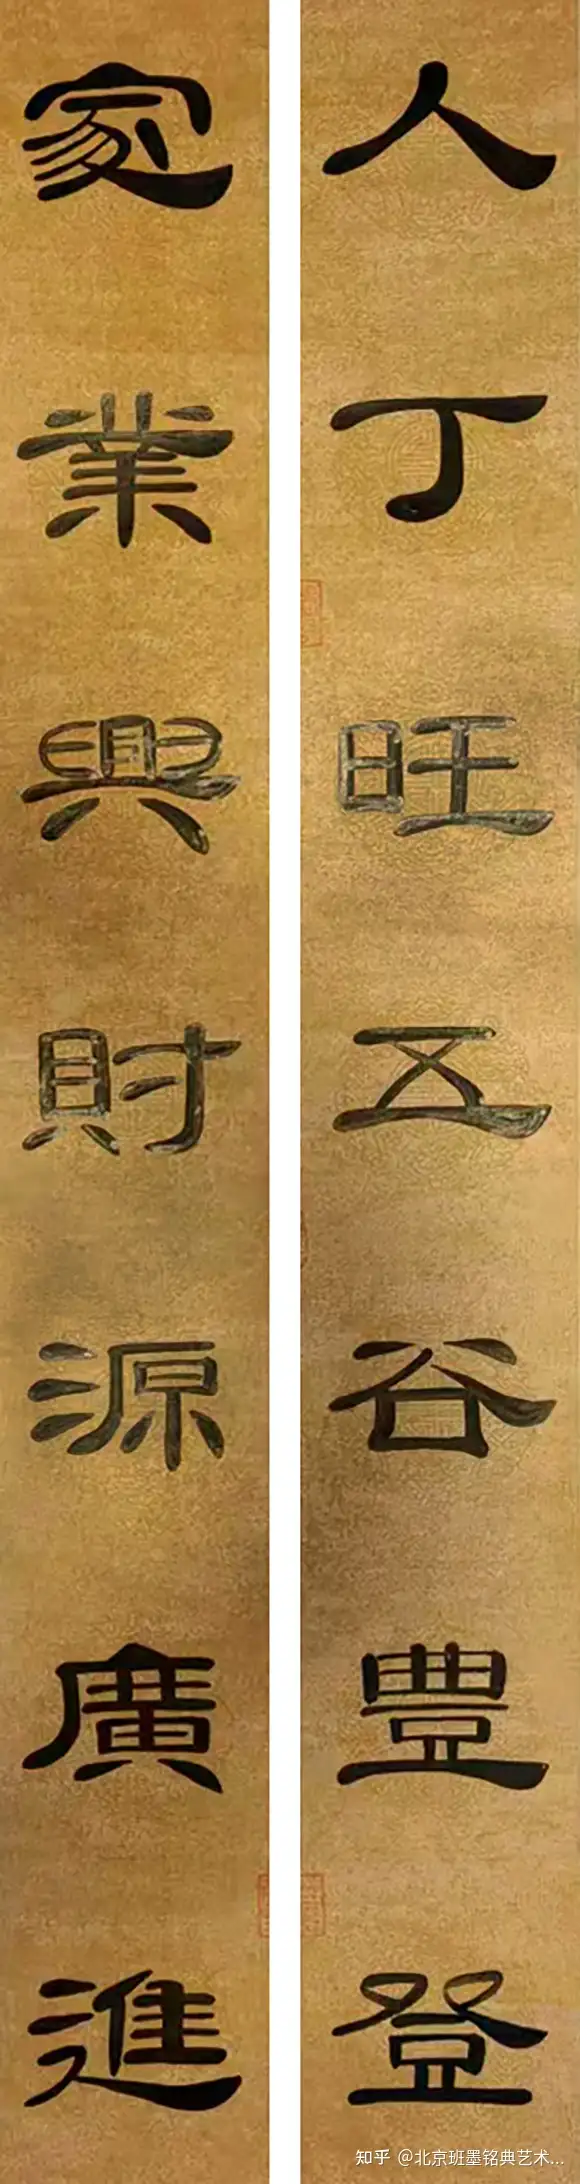 人丁旺五谷豐登
家業興財源廣進
知乎 @北京班墨铭典艺术...